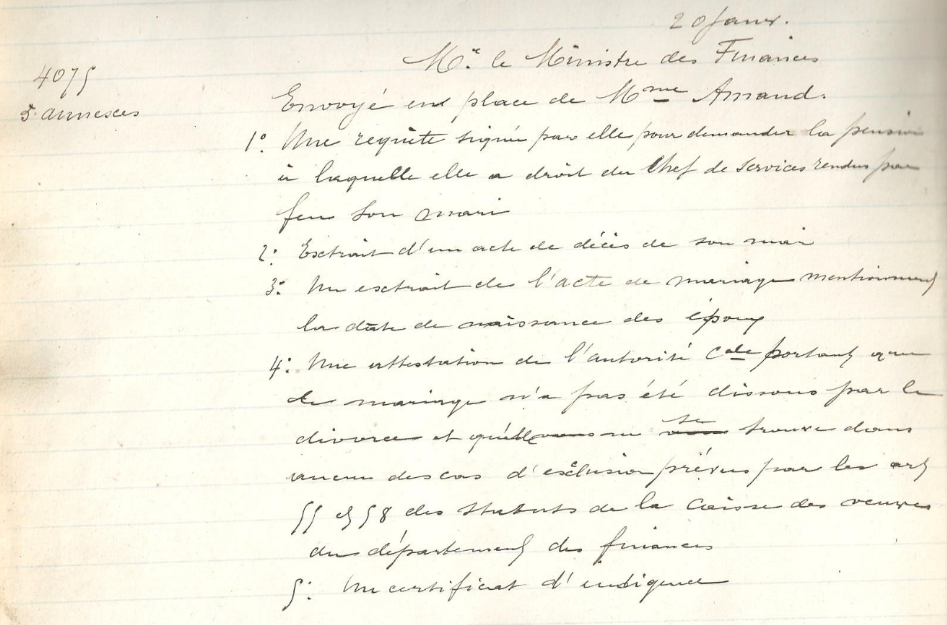 20 Janv.
Mr. le Ministre des Finances
4075
5 annexes
Envoyé en place de Mme Amand.
1° Une requête signée par elle pour demander la pension
à laquelle elle a droit du Chef de services rendus par
feu son mari
2° Extrait d'un acte de décès de son mari
3° Un extrait de l'acte de mariage mentionnant
la date de naissance des époux
4° Une attestation de l'autorité Cale portant que
le mariage n'a pas été dissous par le
divorce et qu'elle ne se trouve dans
aucun des cas d'exclusion prévus par les art
55 et 58 des statuts de la Caisse des veuves
du département des finances
5° Un certificat d'indigence